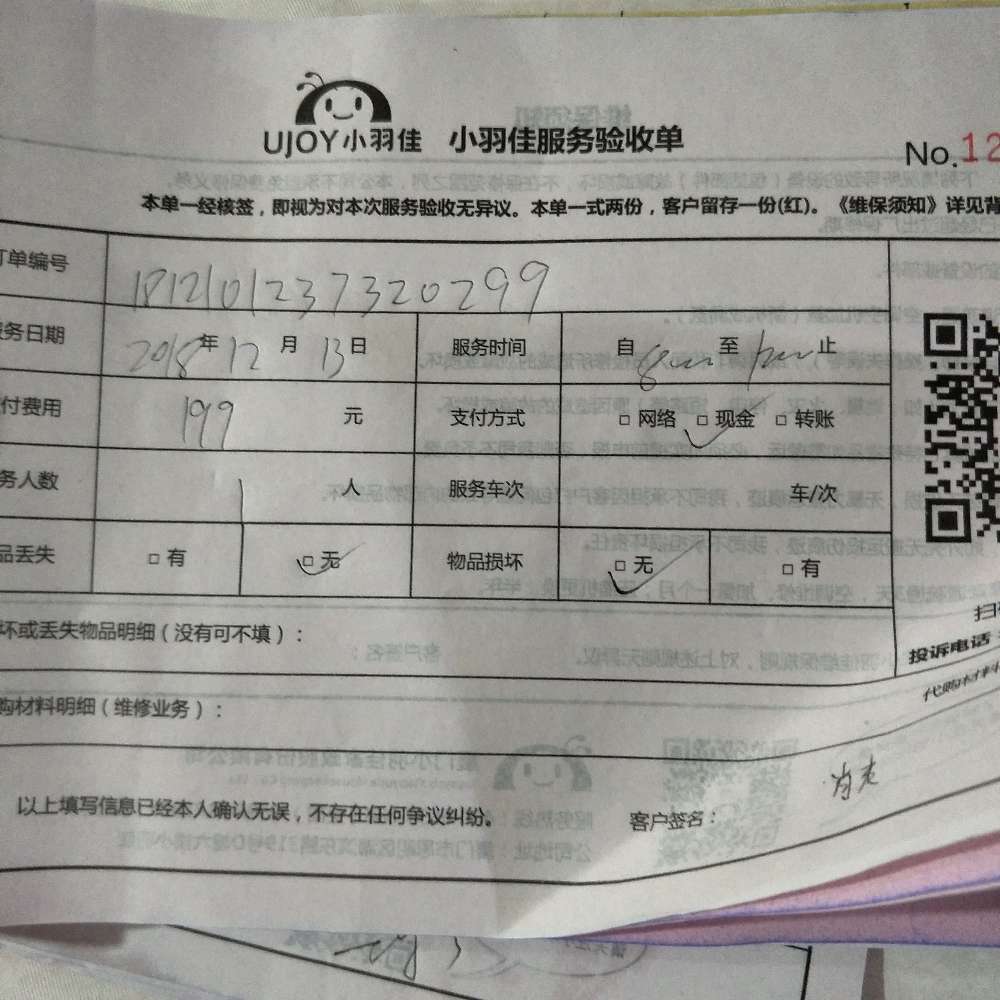 UJOY小羽佳 小羽佳服务验收单
No.12
本单一经核签，即视为对本次服务验收无异议。本单一式两份，客户留存一份(红)。《维保须知》详见背
订单编号 1812101237320299
服务日期 2018年12月13日 服务时间 自 至 止
付费用 199 元 支付方式 □ 网络 □ 现金 □ 转账
务人数 1 人 服务车次 车/次
品丢失 □ 有 □ 无 物品损坏 □ 无 □ 有
坏或丢失物品明细（没有可不填）：
扫
投诉电话：
购材料明细（维修业务）：
代购材料
以上填写信息已经本人确认无误，不存在任何争议纠纷。 客户签名：